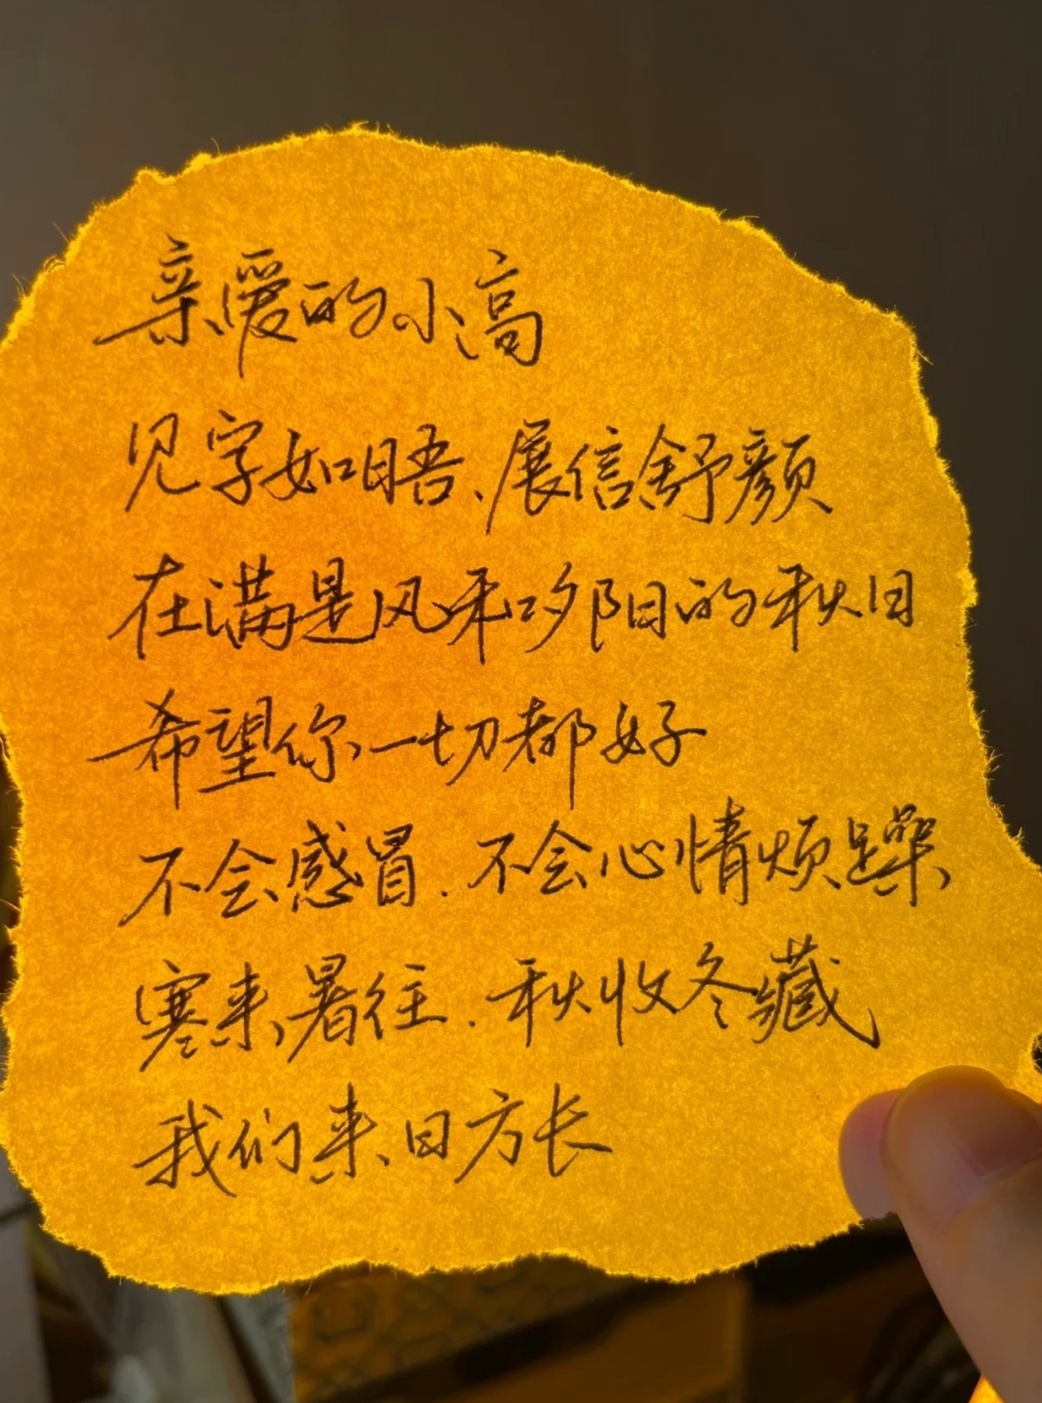 亲爱的小高
见字如晤、展信舒颜
在满是风和夕阳的秋日
希望你一切都好
不会感冒.不会心情烦躁
寒来暑往.秋收冬藏
我们来日方长